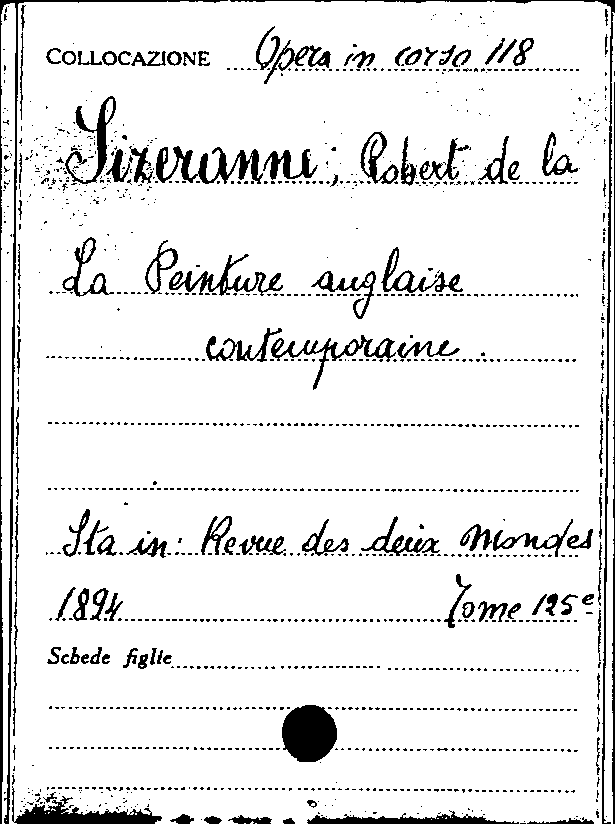 COLLOCAZIONE Opera in corso 118
Sizeranne; Robert de la
La Peinture anglaise
contemporaine.
Sta in: Revue des deux Mondes
1894 Tome 125e
Schede figlie